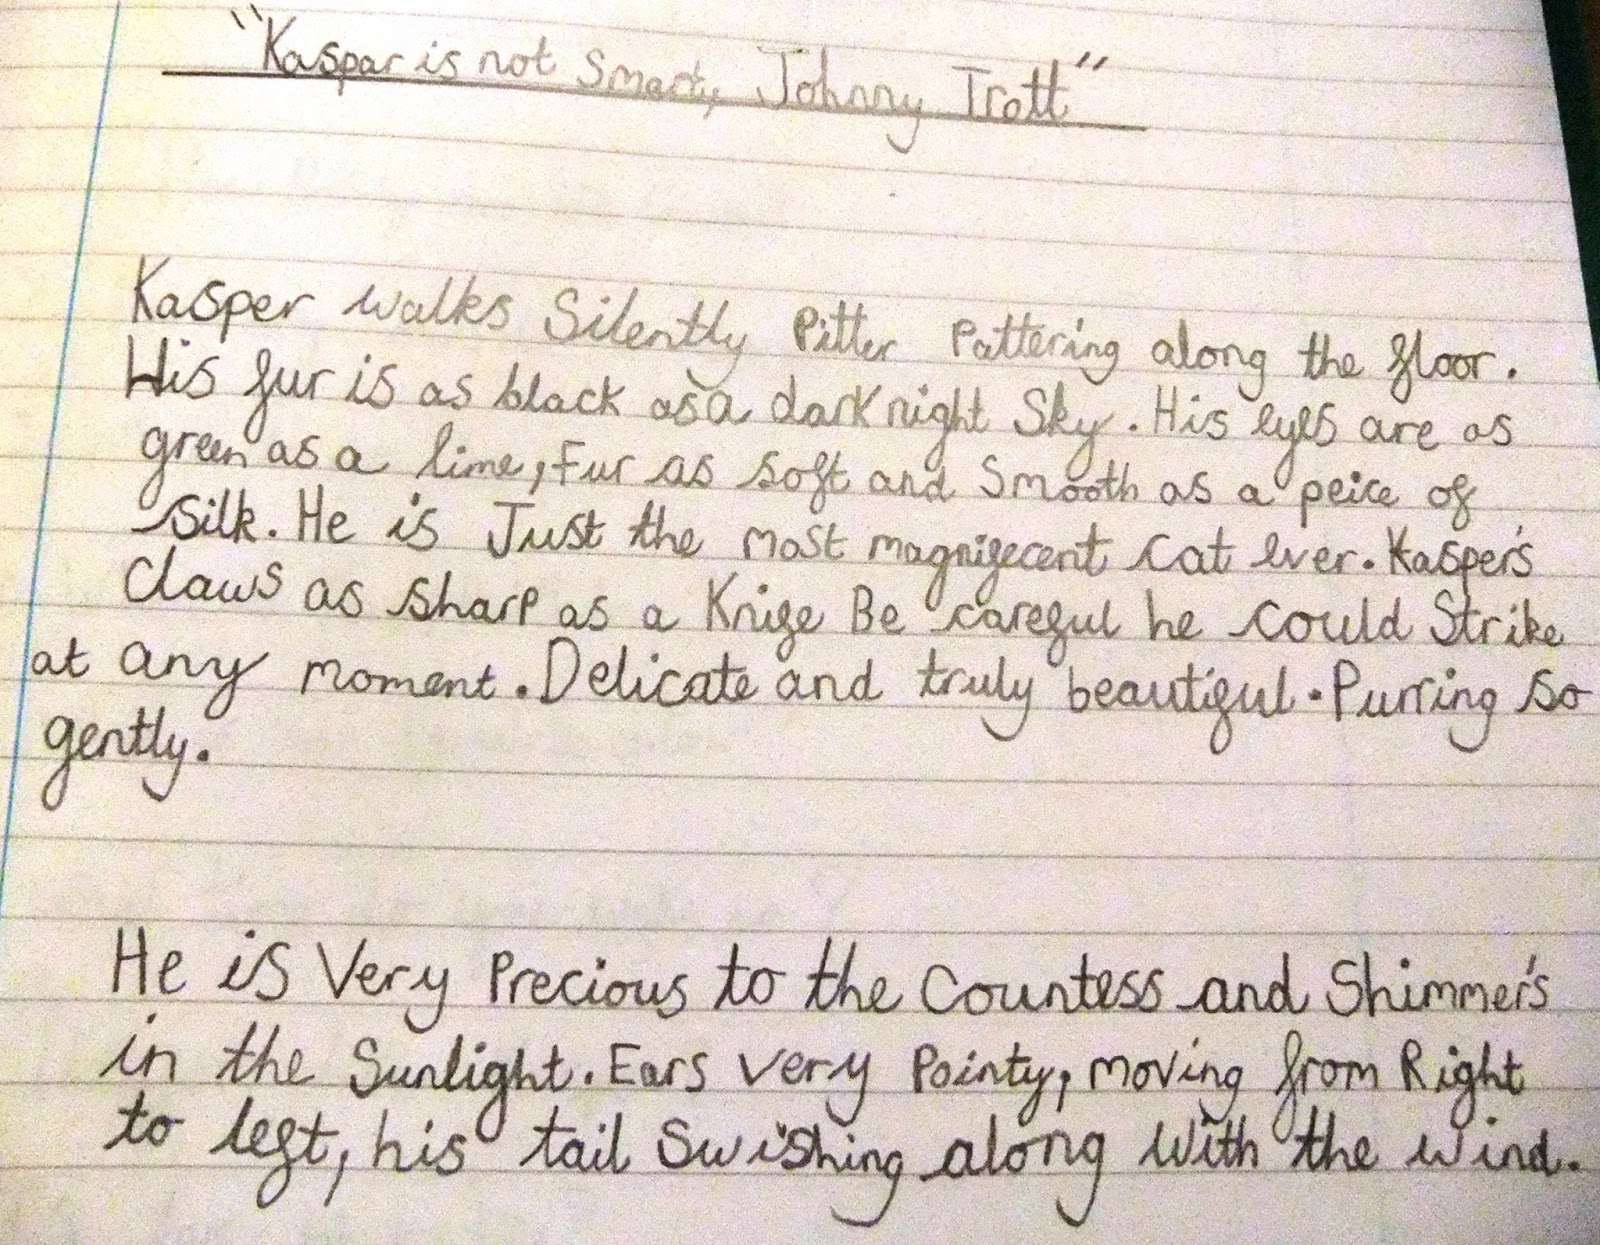 "Kaspar is not Smart, Johnny Trott"
Kasper walks Silently Pitter Pattering along the floor.
His fur is as black as a dark night Sky. His eyes are as
green as a lime, Fur as soft and Smooth as a peice of
silk. He is Just the most magnifecent cat ever. Kasper's
claws as sharp as a Knife Be careful he could Strike
at any moment. Delicate and truly beautiful. Purring so
gently.
He is Very Precious to the Countess and Shimmer's
in the Sunlight. Ears very Pointy, moving from Right
to left, his tail Swishing along With the wind.